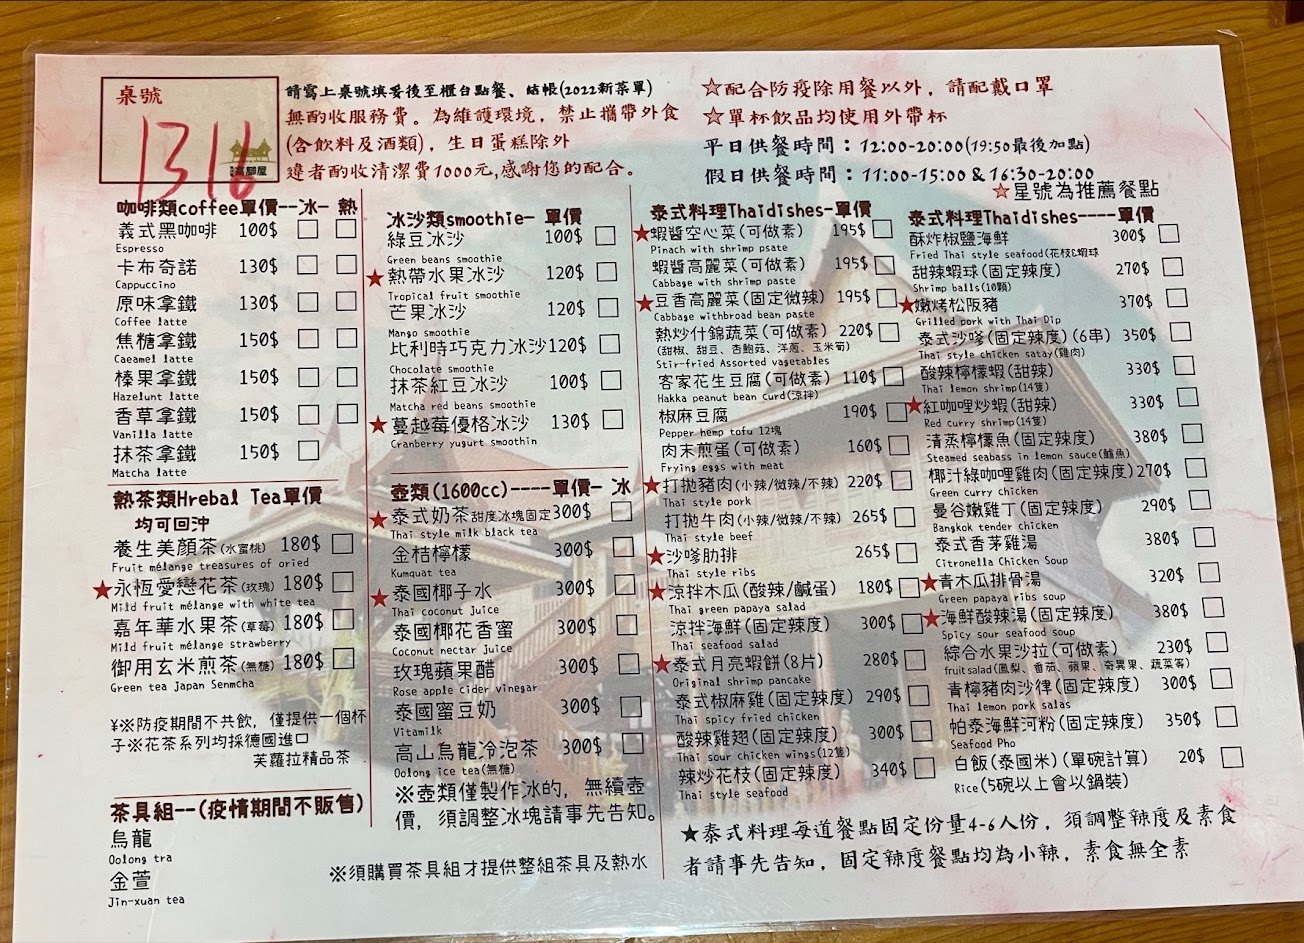 桌號
1316
高腳屋
請寫上桌號填妥後至櫃台點餐、結帳(2022新菜單)
無酌收服務費。為維護環境，禁止攜帶外食
(含飲料及酒類)，生日蛋糕除外
違者酌收清潔費1000元,感謝您的配合。
☆配合防疫除用餐以外，請配戴口罩
☆單杯飲品均使用外帶杯
平日供餐時間：12:00-20:00(19:50最後加點)
假日供餐時間：11:00-15:00 & 16:30-20:00
☆星號為推薦餐點
咖啡類coffee單價--冰- 熱
義式黑咖啡 100$ □ □
Espresso
卡布奇諾 130$ □ □
Cappuccino
原味拿鐵 130$ □ □
Coffee latte
焦糖拿鐵 150$ □ □
Caeamel latte
榛果拿鐵 150$ □ □
Hazelunt latte
香草拿鐵 150$ □ □
Vanilla latte
抹茶拿鐵 150$ □
Matcha latte
熱茶類Hrebal Tea單價
均可回沖
養生美顏茶(水蜜桃) 180$ □
Fruit mélange treasures of oried
★永恆愛戀花茶(玫瑰) 180$ □
Mild fruit mélange with white tea
嘉年華水果茶(草莓) 180$ □
Mild fruit mélange strawberry
御用玄米煎茶(無糖) 180$ □
Green tea Japan Senmcha
¥※防疫期間不共飲，僅提供一個杯
子※花茶系列均採德國進口
芙蘿拉精品茶
茶具組--(疫情期間不販售)
烏龍
Oolong tra
金萱
Jin-xuan tea
冰沙類smoothie- 單價
綠豆冰沙 100$ □
Green beans smoothie
★熱帶水果冰沙 120$ □
Tropical fruit smoothie
芒果冰沙 120$ □
Mango smoothie
比利時巧克力冰沙120$ □
Chocolate smoothie
抹茶紅豆冰沙 100$ □
Matcha red beans smoothie
★蔓越莓優格冰沙 130$ □
Cranberry yugurt smoothin
壺類(1600cc)----單價- 冰
★泰式奶茶甜度冰塊固定300$ □
Thai style milk black tea
金桔檸檬 300$ □
Kumquat tea
★泰國椰子水 300$ □
Thai coconut juice
泰國椰花香蜜 300$ □
Coconut nectar juice
玫瑰蘋果醋 300$ □
Rose apple cider vinegar
泰國蜜豆奶 300$ □
Vitamilk
高山烏龍冷泡茶 300$ □
Oolong ice tea(無糖)
※壺類僅製作冰的，無續壺
價，須調整冰塊請事先告知。
※須購買茶具組才提供整組茶具及熱水
泰式料理Thaidishes-單價
★蝦醬空心菜(可做素) 195$ □
Pinach with shrimp psate
蝦醬高麗菜(可做素) 195$ □
Cabbage with shrimp paste
★豆香高麗菜(固定微辣) 195$ □
Cabbage withbroad bean paste
熱炒什錦蔬菜(可做素) 220$ □
(甜椒、甜豆、杏鮑菇、洋蔥、玉米筍)
Stir-fried Assorted vagetables
客家花生豆腐(可做素) 110$ □
Hakka peanut bean curd(涼拌)
椒麻豆腐 190$ □
Pepper hemp tofu 12塊
肉末煎蛋(可做素) 160$ □
Frying eggs with meat
★打拋豬肉(小辣/微辣/不辣) 220$ □
Thai style pork
打拋牛肉(小辣/微辣/不辣) 265$ □
Thai style beef
★沙嗲肋排 265$ □
Thai style ribs
★涼拌木瓜(酸辣/鹹蛋) 180$ □
Thai green papaya salad
涼拌海鮮(固定辣度) 300$ □
Thai seafood salad
★泰式月亮蝦餅(8片) 280$ □
Original shrimp pancake
泰式椒麻雞(固定辣度) 290$ □
Thai spicy fried chicken
酸辣雞翅(固定辣度) 300$ □
Thai sour chicken wings(12隻)
辣炒花枝(固定辣度) 340$ □
Thai style seafood
泰式料理Thaidishes----單價
酥炸椒鹽海鮮 300$ □
Fried Thai style seafood(花枝&蝦球
甜辣蝦球(固定辣度) 270$ □
Shrimp balls(10顆)
★嫩烤松阪豬 370$ □
Grilled pork with Thai Dip
泰式沙嗲(固定辣度)(6串) 350$ □
Thai style chicken satay(雞肉)
酸辣檸檬蝦(甜辣) 330$ □
Thai lemon shrimp(14隻)
★紅咖哩炒蝦(甜辣) 330$ □
Red curry shrimp(14隻)
清蒸檸檬魚(固定辣度) 380$ □
Steamed seabass in lemon sauce(鱸魚)
椰汁綠咖哩雞肉(固定辣度)270$ □
Green curry chicken
曼谷嫩雞丁(固定辣度) 290$ □
Bangkok tender chicken
泰式香茅雞湯 380$ □
Citronella Chicken Soup
★青木瓜排骨湯 320$ □
Green papaya ribs soup
★海鮮酸辣湯(固定辣度) 380$ □
Spicy sour seafood soup
綜合水果沙拉(可做素) 230$ □
fruit salad(鳳梨、番茄、蘋果、奇異果、蔬菜等)
青檸豬肉沙律(固定辣度) 300$ □
Thai lemon pork salas
帕泰海鮮河粉(固定辣度) 350$ □
Seafood Pho
白飯(泰國米)(單碗計算) 20$ □
Rice(5碗以上會以鍋裝)
★泰式料理每道餐點固定份量4-6人份，須調整辣度及素食
者請事先告知，固定辣度餐點均為小辣，素食無全素